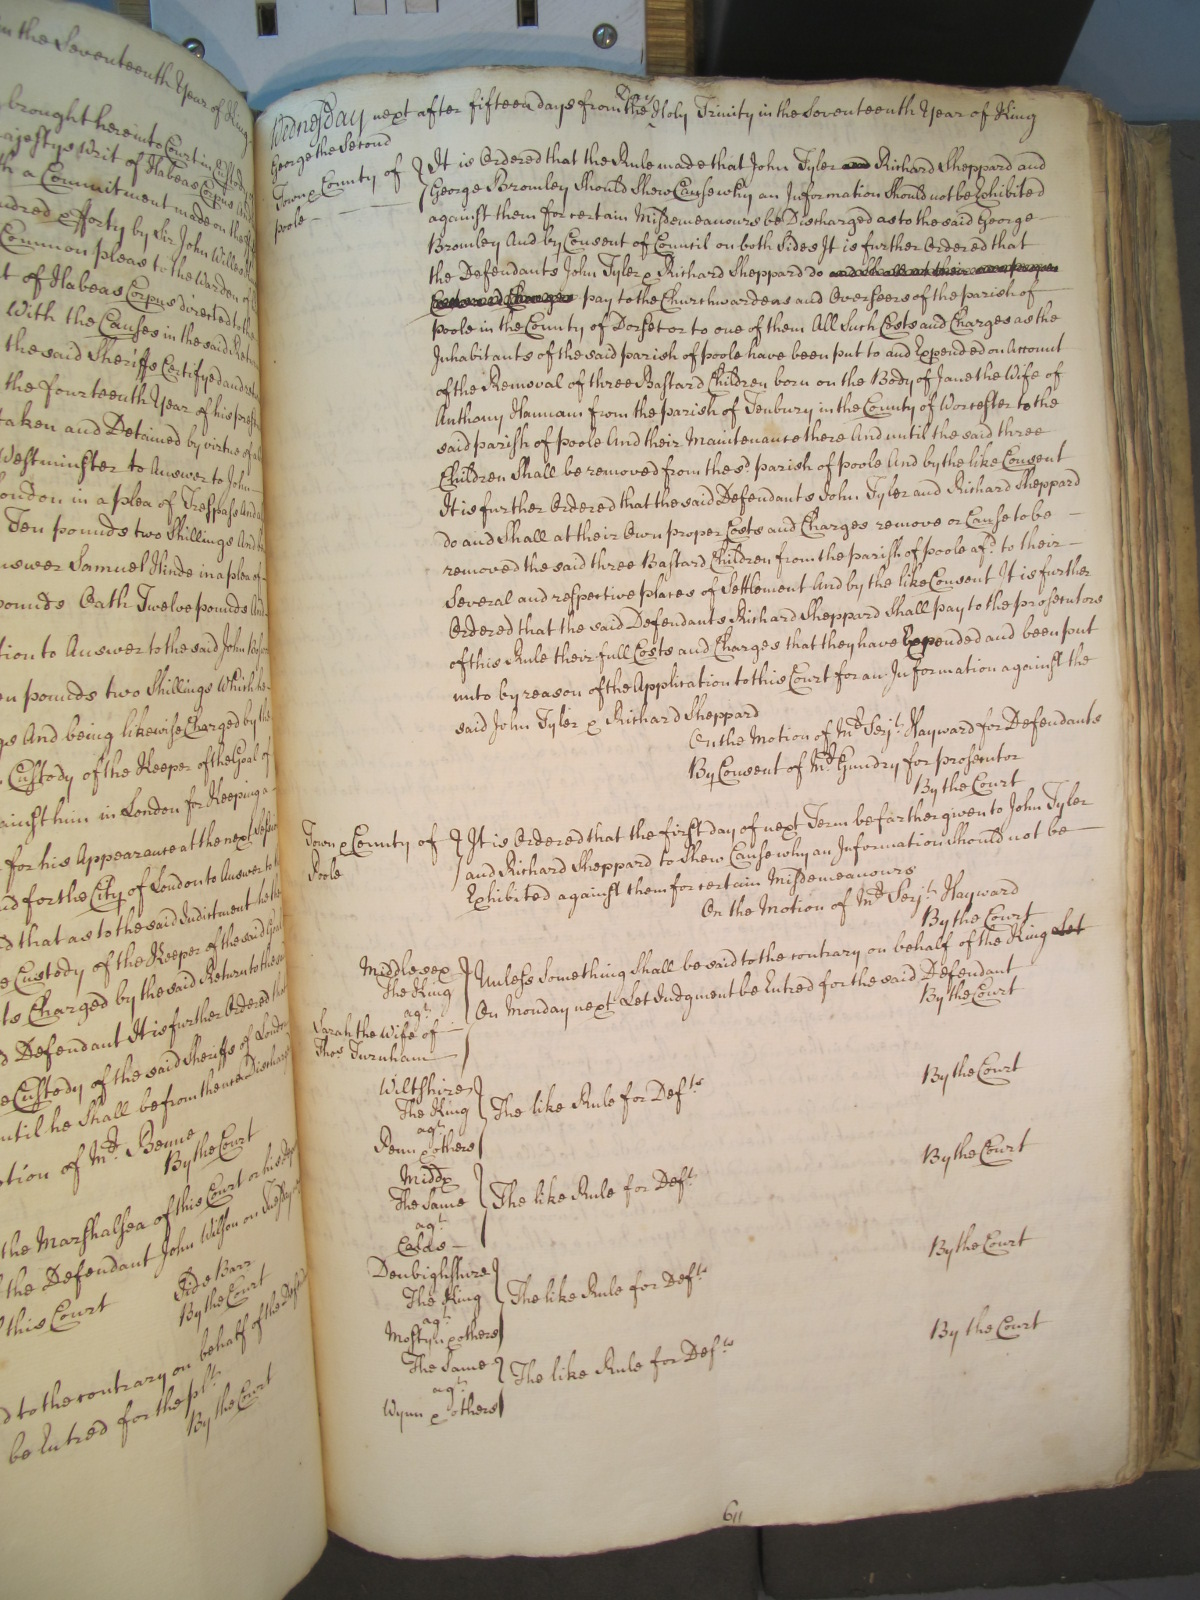 in the Seventeenth Year of King
brought here into Court in Custody
Majestys Writ of Habeas Corpus and
th a Commitment made on the
undred & fforty by Sir John Willes
Common pleas to the Warden of
t of Habeas Corpus directed to the
With the Causes in the said
the said Sheriffs Certifyed and
the fourteenth Year of his
taken and Detained by virtue of
Westminster to Answer to John
London in a plea of Trespass And
Ten pounds two Shillings And
nswer Samuel Hinde in a plea of
pounds Oath Twelve pounds And
tion to Answer to the said John
en pounds two Shillings Which
gs And being likewise Charged by the
Custody of the Keeper of the Goal of
ainst him in London for Keeping a
for his Appearance at the next
nd for the City of London to Answer to
d that as to the said Indictment
e Custody of the Keeper of the said
ts Charged by the said Return to the
d Defendant It is further Ordered
e Custody of the said Sheriffs of London
until he Shall be from thence Discharged
otion of Mr. Benne
By the Court
the Marshalsea of this Court or his
the Defendant John Wilson on
this Court Side Barr
By the Court
d to the contrary on behalf of the
be Entred for the plt.
By the Court
Wednesday next after fifteen days from the Day Holy Trinity in the Seventeenth Year of King
George the Second
Town & County of
poole
It is Ordered that the Rule made that John Tyler and Richard Sheppard and
George Bromley Should Shew Cause why an Information Should not be Exhibited
against them for certain Misdemeanours be Discharged as to the said George
Bromley And by Consent of Council on both Sides It is further Ordered that
the Defendants John Tyler & Richard Sheppard do and Shall at their own proper
Costs and Charges pay to the Churchwardens and Overseers of the parish of
poole in the County of Dorset or to one of them All Such Costs and Charges as the
Inhabitants of the said parish of poole have been put to and Expended on Account
of the Removal of three Bastard Children born on the Body of Jane the Wife of
Anthony Hannam from the parish of Tenbury in the County of Worcester to the
said parish of poole And their Maintenance there And until the said three
Children Shall be removed from the sd. parish of poole And by the like Consent
It is further Ordered that the said Defendants John Tyler and Richard Sheppard
do and Shall at their Own proper Costs and Charges remove or Cause to be
removed the said three Bastard Children from the parish of poole afd. to their
Several and respective places of Settlement And by the like Consent It is further
Ordered that the said Defendants Richard Sheppard Shall pay to the prosecutors
of this Rule their full Costs and Charges that they have Expended and been put
unto by reason of the Application to this Court for an Information against the
said John Tyler & Richard Sheppard
On the Motion of Mr. Serjt. Hayward for Defendants
By Consent of Mr. Gundry for prosecutor
By the Court
Town & County of
Poole
It is Ordered that the first day of next Term be farther given to John Tyler
and Richard Sheppard to Shew Cause why an Information Should not be
Exhibited against them for certain Misdemeanours
On the Motion of Mr. Serjt. Hayward
By the Court
Middlesex
The King
agt.
Sarah the Wife of
Thos. Turnham
Unless Something Shall be said to the contrary on behalf of the King Let
On Monday next Let Judgment be Entred for the said Defendant
By the Court
Wiltshire
The King
agt.
Penn & others
The like Rule for Defts
By the Court
Middx
The Same
agt.
The like Rule for Deft.
By the Court
Denbighshire
The King
agt.
Mostyn & others
The like Rule for Defts
By the Court
The Same
agt.
Wynn & others
The like Rule for Defts
By the Court
611